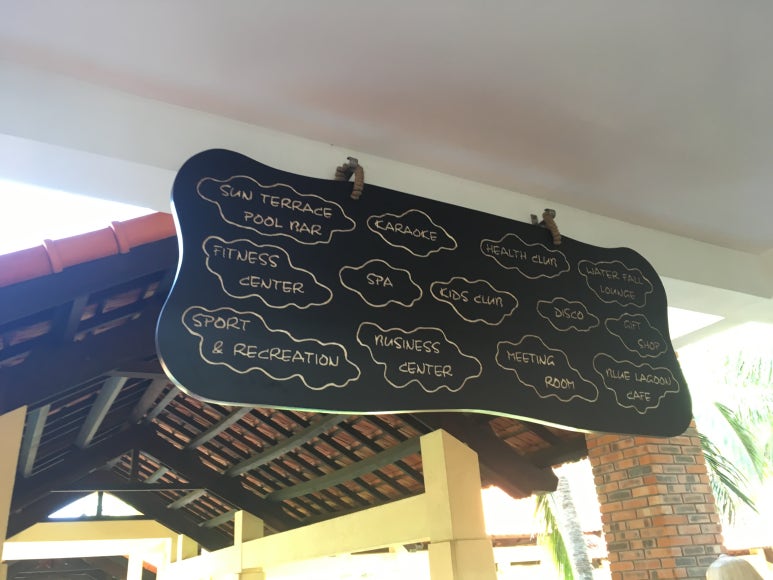 SUN TERRACE
POOL BAR
KARAOKE
HEALTH CLUB
WATER FALL
LOUNGE
FITNESS
CENTER
SPA
KIDS CLUB
DISCO
GIFT
SHOP
SPORT
& RECREATION
BUSINESS
CENTER
MEETING
ROOM
BLUE LAGOON
CAFE